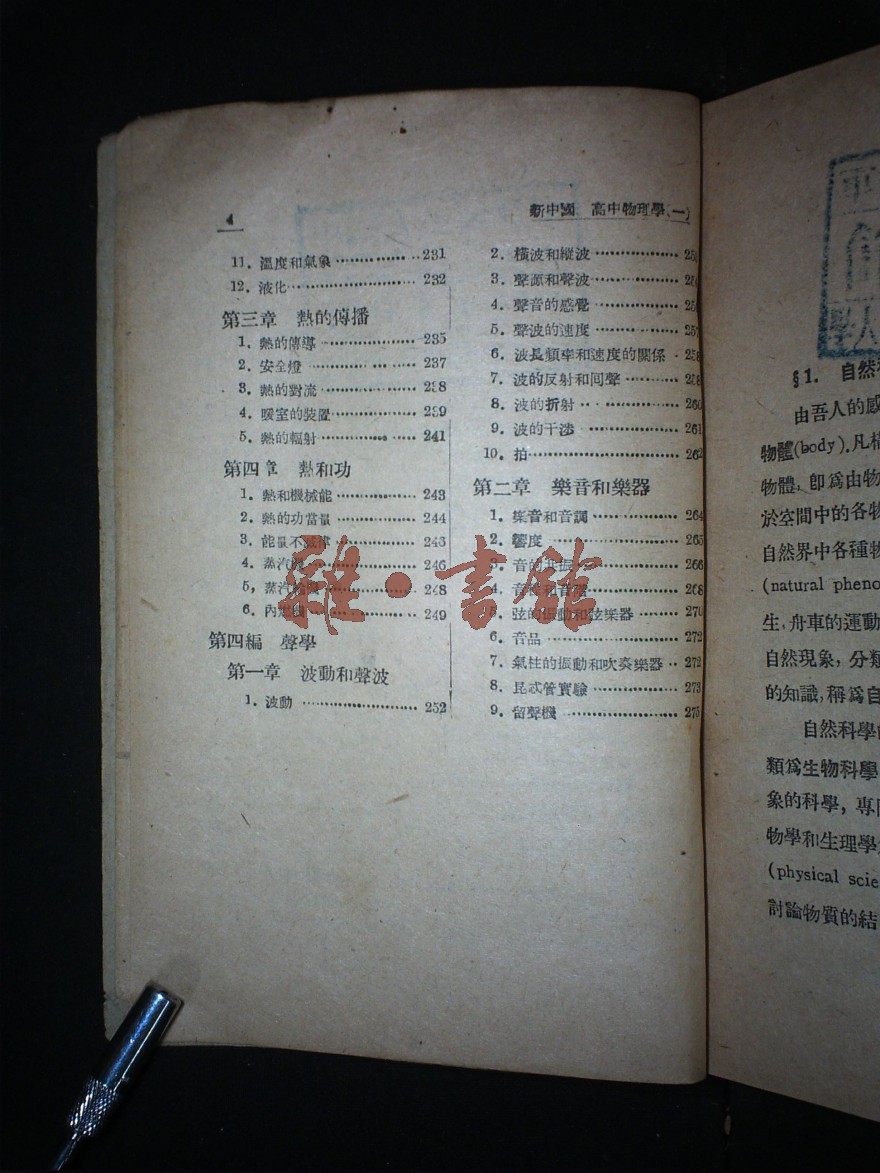 4
新中國 高中物理學(一)
11. 溫度和氣象 231
12. 液化 232
第三章 熱的傳播
1. 熱的傳導 235
2. 安全燈 237
3. 熱的對流 238
4. 暖室的裝置 239
5. 熱的輻射 241
第四章 熱和功
1. 熱和機械能 243
2. 熱的功當量 244
3. 能量不滅律
4. 蒸汽機 246
5. 蒸汽 248
6. 內燃機 249
第四編 聲學
第一章 波動和聲波
1. 波動 252
2. 橫波和縱波
3. 聲源和聲波
4. 聲音的感覺
5. 聲波的速度
6. 波長頻率和速度的關係
7. 波的反射和回聲
8. 波的折射 260
9. 波的干涉 261
10. 拍 262
第二章 樂音和樂器
1. 樂音和音調 264
2. 響度 265
3. 音的共振 266
4. 268
5. 弦的振動和弦樂器 270
6. 音品 272
7. 氣柱的振動和吹奏樂器 272
8. 昆忒管實驗 273
9. 留聲機 275
雜·書館
§1. 自然科
由吾人的感
物體(body).凡構
物體,卽爲由物
於空間中的各物
自然界中各種物
(natural pheno
生,舟車的運動
自然現象,分類
的知識,稱爲自
自然科學
類爲生物科學
象的科學,專
物學和生理學
(physical scie
討論物質的結